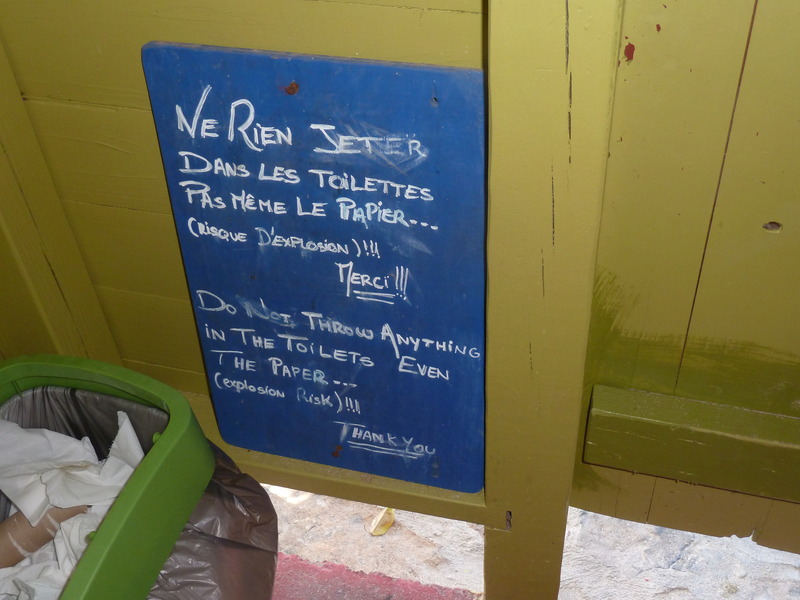 NE RIEN JETER
DANS LES TOILETTES
PAS MÊME LE PAPIER...
(RISQUE D'EXPLOSION)!!!
MERCI!!!
DO NOT THROW ANYTHING
IN THE TOILETS EVEN
THE PAPER...
(explosion Risk)!!!
THANK YOU